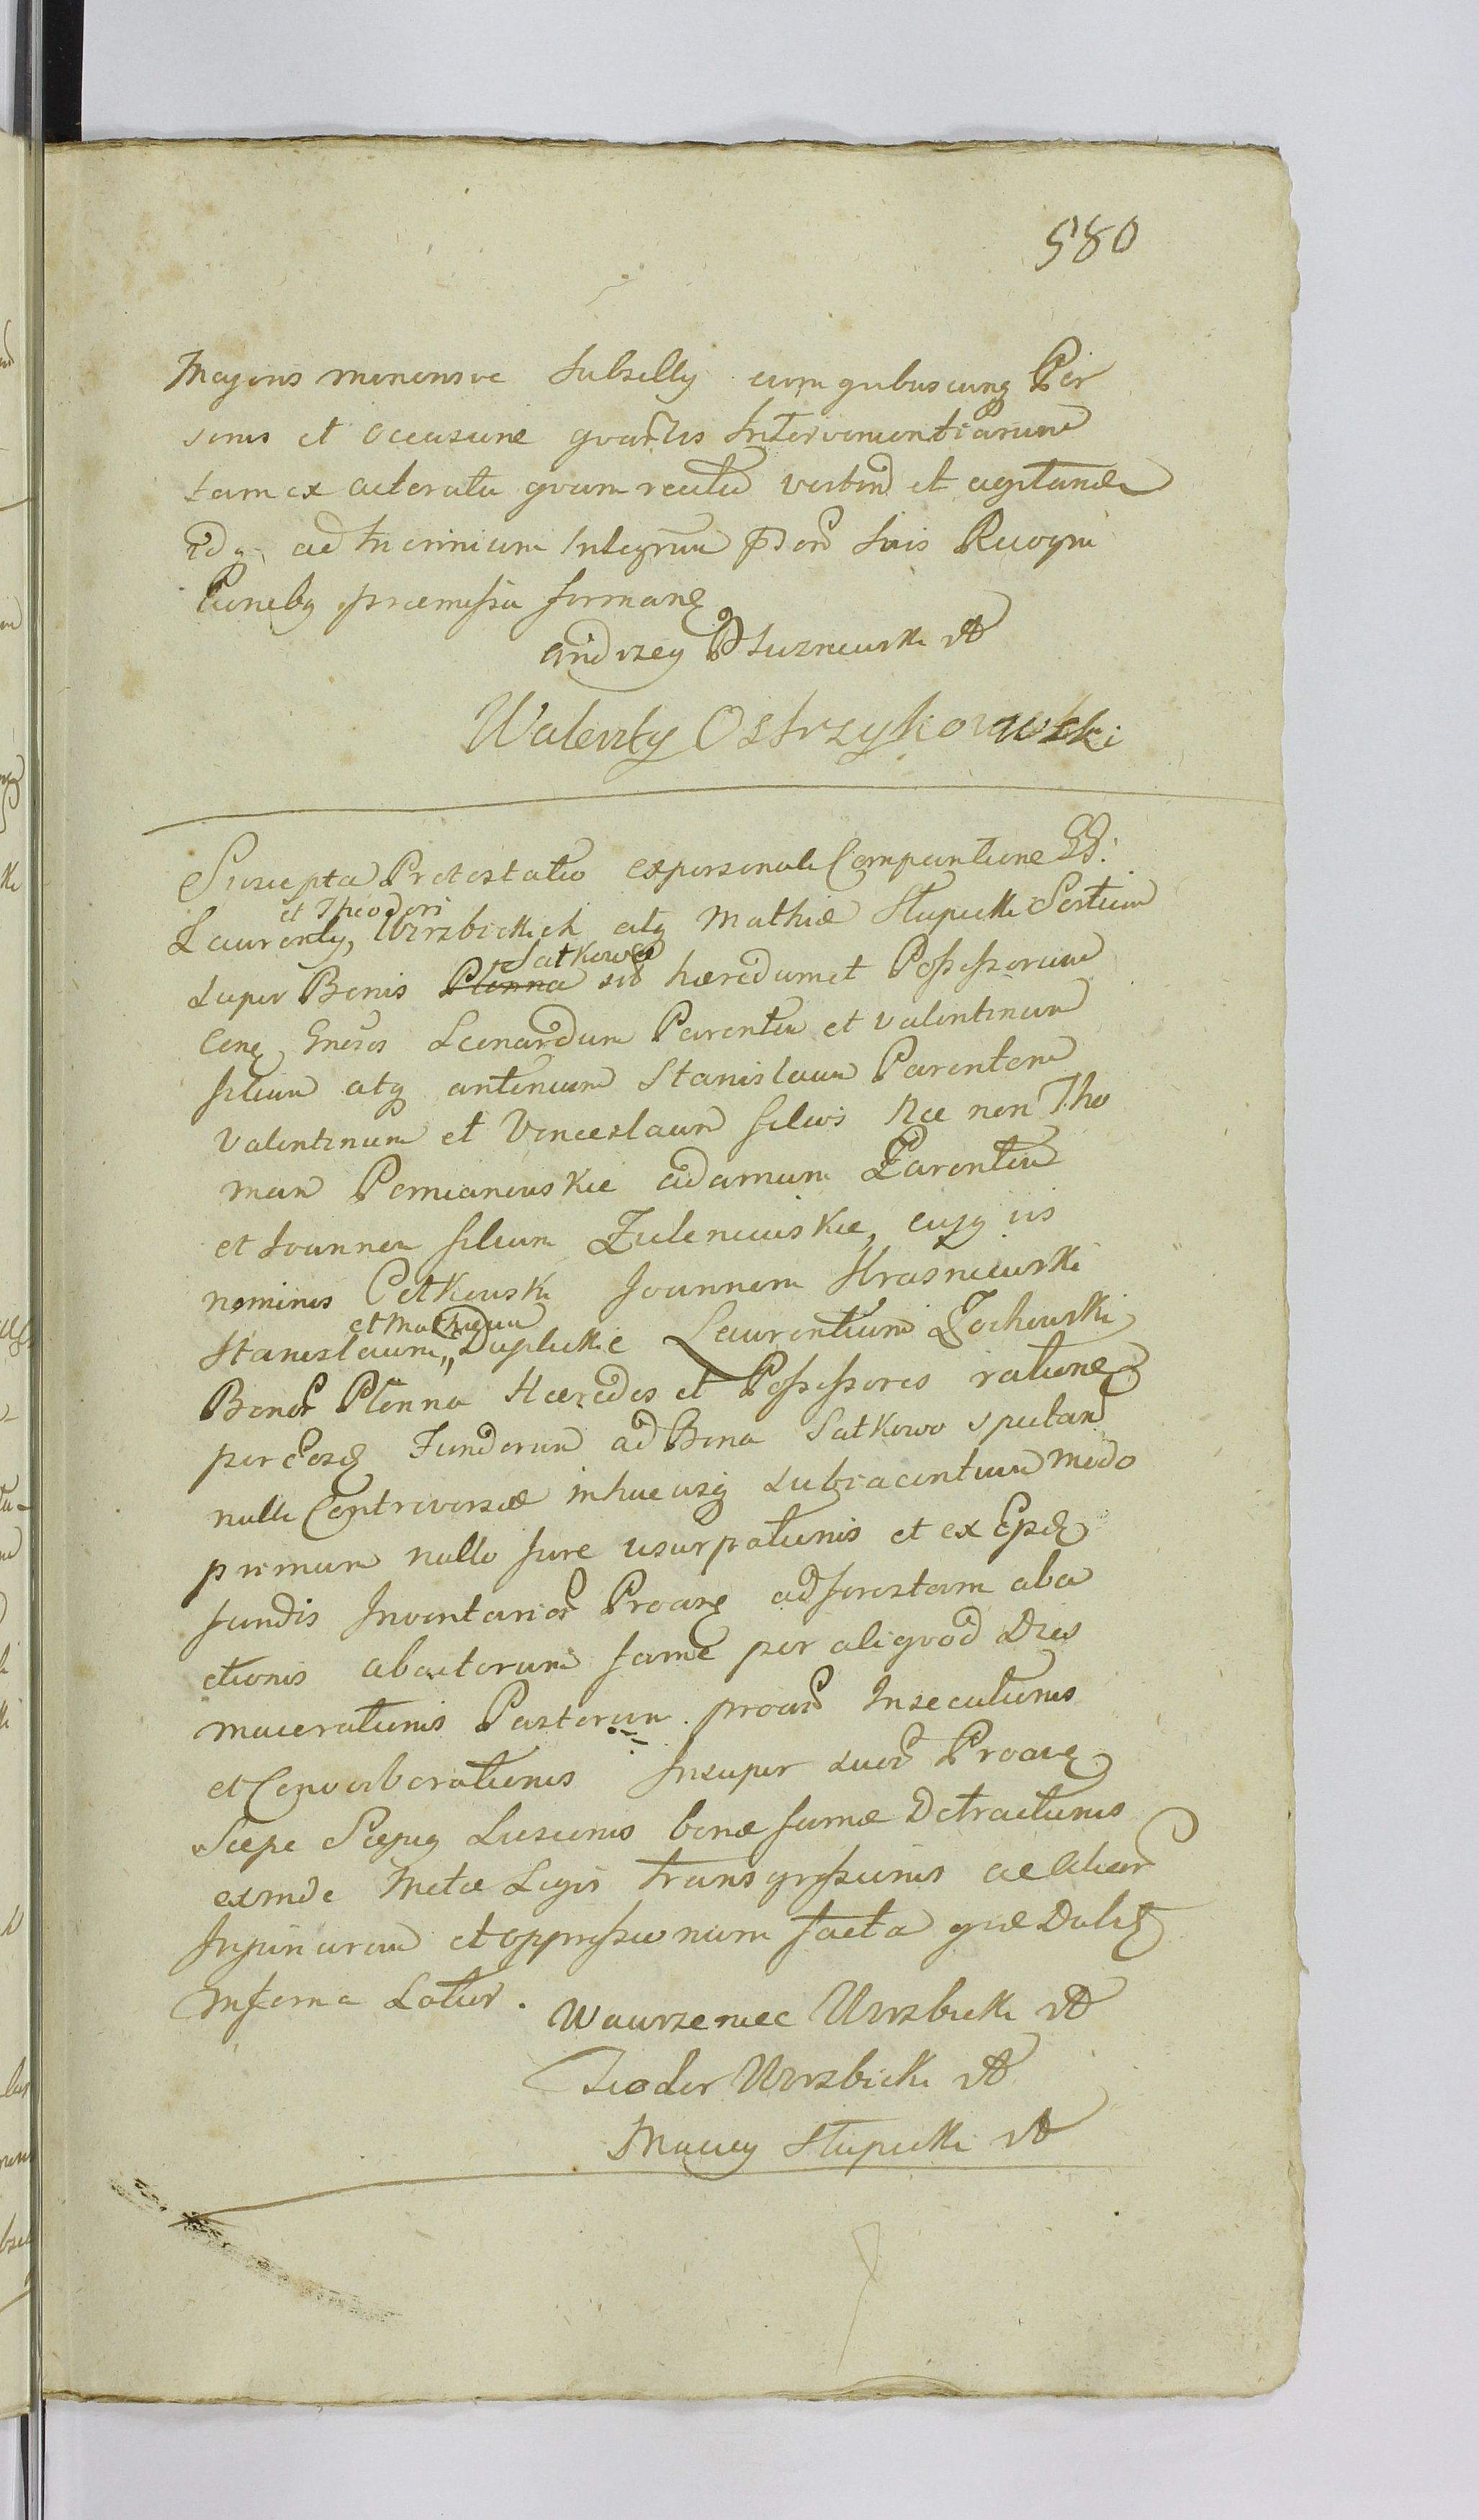 580
Majoris minorisve Subselly cum quibuscunq Per
sonis et Occasione quarvis Intervenientiarum
tam ex acteratu quam reatu vertend et agitand
idq ad Juridicum Integrum suis Recogni
tioneby præmissa formanq
Andrzey Pluzniewski
Walenty Ostrzykowski
Suscepta Protestatio ex personali Comparitione GG.
et Theodori
Laurenty, Wirzbickich atq Mathiæ Słupecki Sortium
Satkowo
super Bonis Plonna sit hæredum et Possessorum
Conq Gnosos Leonardum Parentem et Valentinum
filium atq Antonium Stanislaum Parentem
Valentinum et Vinceslaum filios Nec non Tho
mam Pomianowskie Adamum Parentem
et Joannem filium Zuleniewskie, eiusq
nominis Cetkowski Joannem Krasniewski
et Mathæum
Stanislaum,, Duplickie Laurentium Zochowski
Bonor Plonna Hæredes et Possessores rationeq
per Eosq Fundorum ad Bona Satkowo spectan
nulli Controversiæ inhucusq subiacentium modo
primum nullo Jure usurpationis et ex Eisq
fundis Inventarior Proanq ad forestam aba
ctionis abactorum fame per aliquod Dies
macerationis Pastorum proan Insecutionis
et Converberationis Insuper suor Proanq
Sæpe Sæpiq Læsionis bonæ famæ Detractionis
exinde Metæ Legis transgressionis ac aliar
Injuriarum et oppressionum facta
Inferna Latior.
Wawrzeniec Wirzbicki
Teodor Wirzbicki
Maciey Słupecki